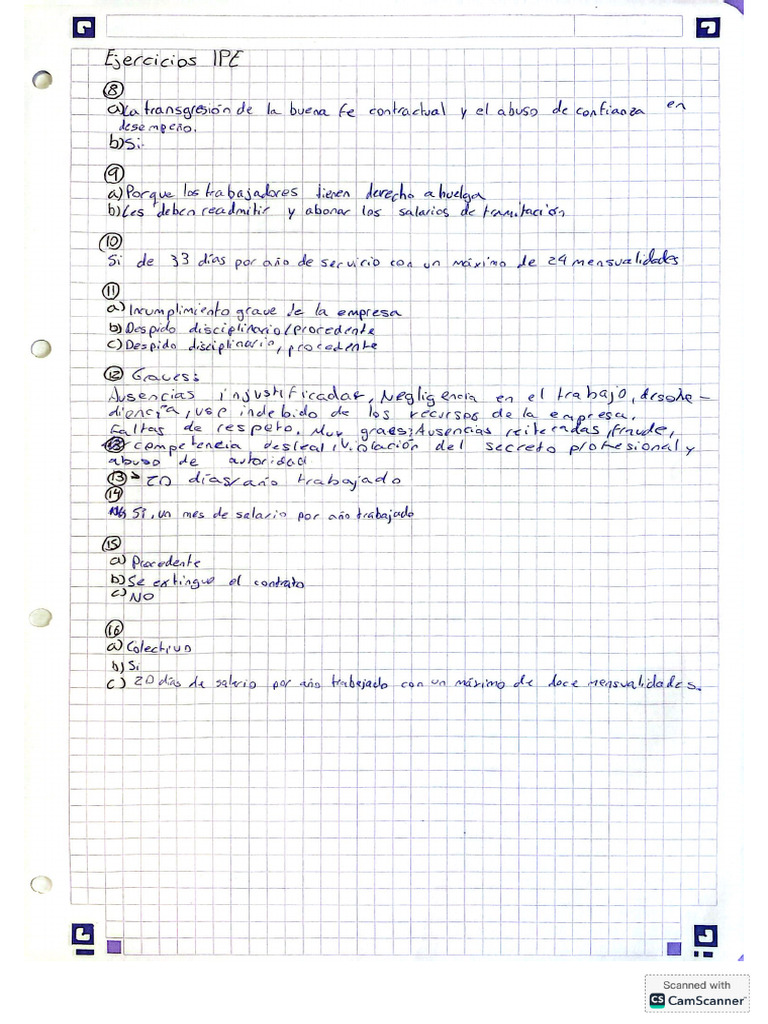 Ejercicios IPE
8
a) La transgresión de la buena fe contractual y el abuso de confianza en
desempeño.
b) Si.
9
a) Porque los trabajadores tienen derecho a huelga
b) Les deben readmitir y abonar los salarios de tramitación
10
Si de 33 días por año de servicio con un máximo de 24 mensualidades
11
a) Incumplimiento grave de la empresa
b) Despido disciplinario/procedente
c) Despido disciplinario, procedente
12 Graves:
Ausencias injustificadas, Negligencia en el trabajo, desobe-
diencia, uso indebido de los recursos de la empresa,
Faltas de respeto. Muy graes: Ausencias reiteradas, fraude,
competencia desleal, violación del secreto profesional y
abuso de autoridad
13 > 20 días/año trabajado
14
Si, un mes de salario por año trabajado
15
a) Procedente
b) Se extingue el contrato
c) NO
16
a) Colectivo
b) Si
c) 20 días de salario por año trabajado con un máximo de doce mensualidades.
Scanned with
CS CamScanner